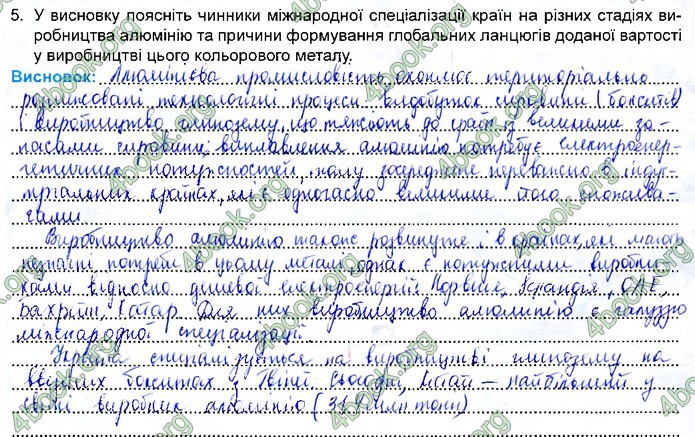 5. У висновку поясніть чинники міжнародної спеціалізації країн на різних стадіях ви-
робництва алюмінію та причини формування глобальних ланцюгів доданої вартості
у виробництві цього кольорового металу.
Висновок: Алюмінієва промисловість охоплює територіально
розміжовані технологічні процеси: видобуток сировини (бокситів)
і виробництво глинозему, що тяжіють до країн з великими за-
пасами сировини; виплавлення алюмінію потребує електроенер-
гетичних потужностей, тому зосереджене переважно в індус-
тріальних країнах, які є одночасно великими його спожива-
чами.
Виробництво алюмінію також розвинуте і в країнах, які мають
незначні потреби в цьому металі, однак є потужними виробни-
ками відносно дешевої електроенергії Норвегія, Ісландія, ОАЕ,
Бахрейн, Катар. Для них виробництво алюмінію є галуззю
міжнародної спеціалізації.
Україна спеціалізується на виробництві глинозему на
ввізних бокситах з Гвінеї. Китай – найбільший у
світі виробник алюмінію (млн тонн)
4book.org